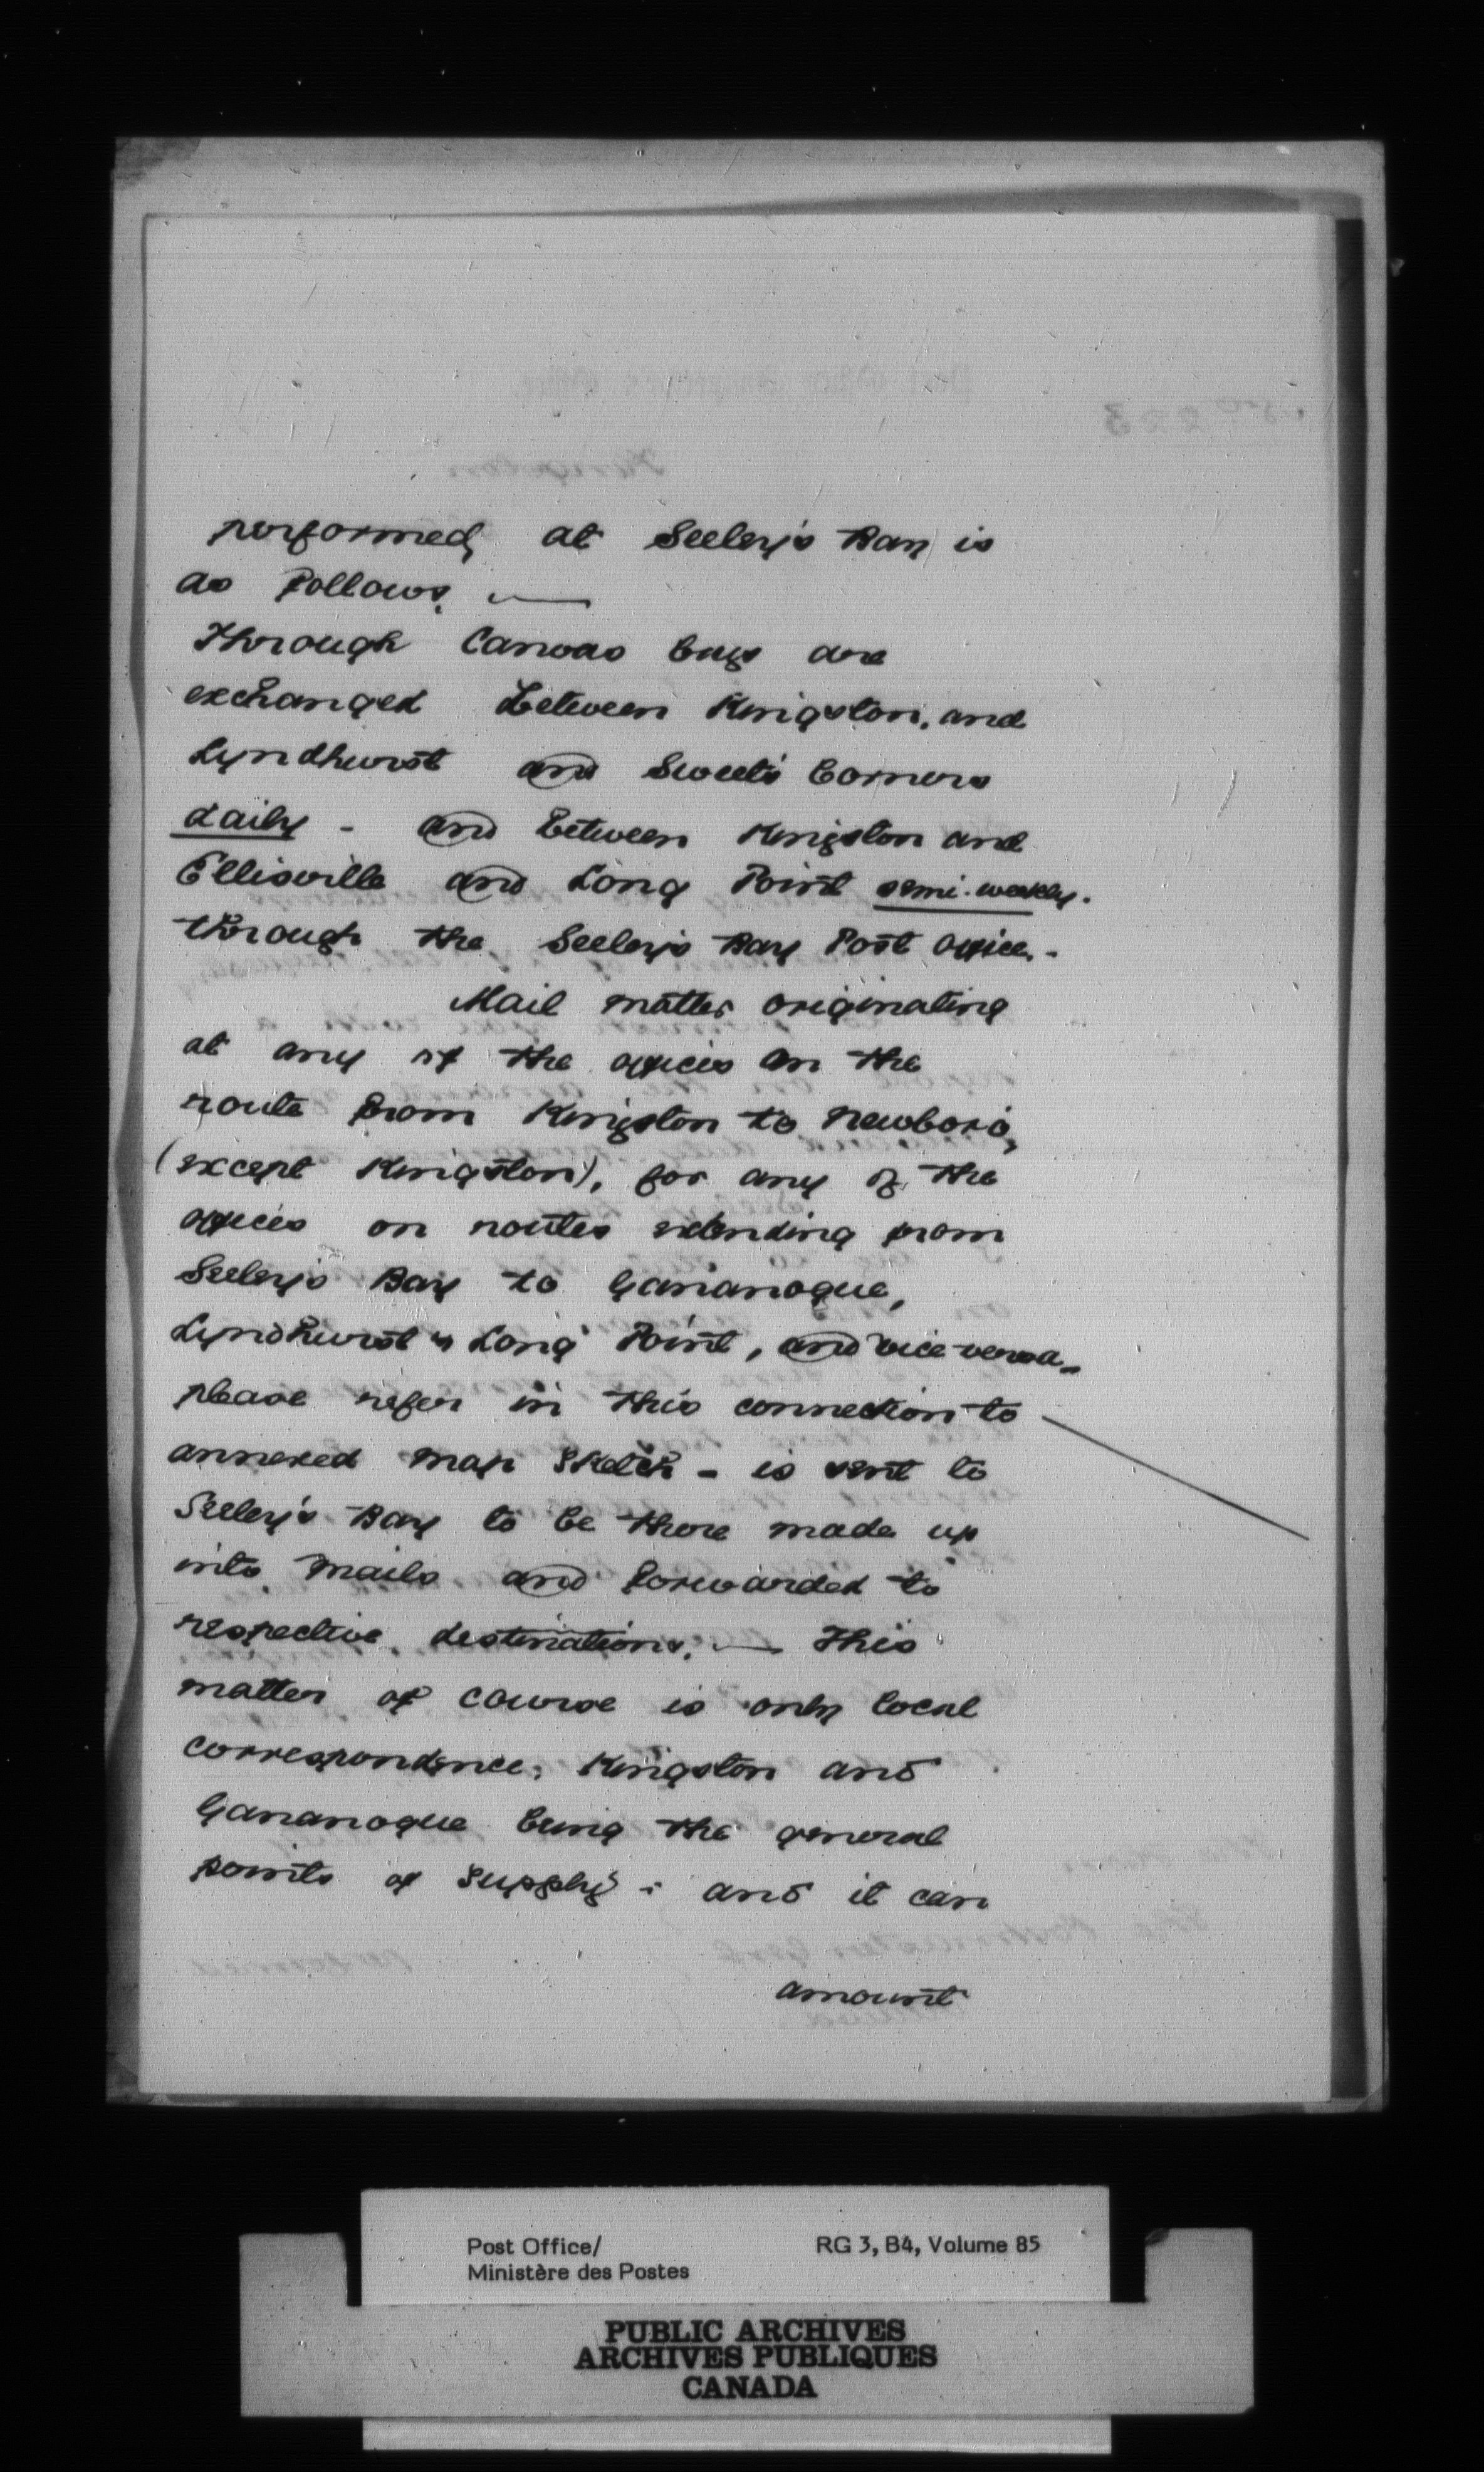 performed, at Seeley's Bay is
as follows. —
Through Canvas bags are
exchanged between Kingston, and
Lyndhurst and Sweet's Corners
daily - and between Kingston and
Ellisville and Long Point semi-weekly.
through the Seeley's Bay Post Office. -
Mail matter originating
at any of the offices on the
route from Kingston to Newboro,
(except Kingston), for any of the
offices on routes extending from
Seeley's Bay to Gananoque,
Lyndhurst & Long Point, and vice-versa -
please refer in this connection to
annexed map sketch - is sent to
Seeley's Bay to be there made up
into mails and forwarded to
respective destinations. — This
matter of course is only local
correspondence, Kingston and
Gananoque being the general
points of supply - and it can
amount
Post Office/
Ministère des Postes
RG 3, B4, Volume 85
PUBLIC ARCHIVES
ARCHIVES PUBLIQUES
CANADA